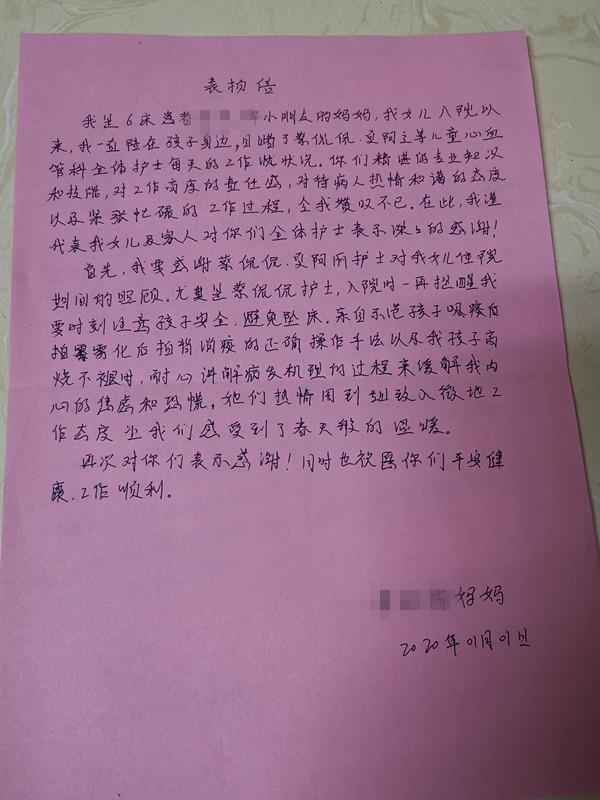 表扬信
我是6床患者小朋友的妈妈,我女儿入院以
来,我一直陪在孩子身边,目睹了蔡侃侃、夏阿立等儿童心血
管科全体护士每天的工作忙状况。你们精湛的专业知识
和技能,对工作高度的责任感,对待病人热情和谐的态度
以及紧张忙碌的工作过程,令我赞叹不已。在此,我谨
代表我女儿及家人对你们全体护士表示深深的感谢!
首先,我要感谢蔡侃侃、夏阿两护士对我女儿住院
期间的照顾。尤其是蔡侃侃护士,入院时一再提醒我
要时刻注意孩子安全、避免坠床。亲自示范孩子吸痰后
拍雾化后拍背消痰的正确操作手法以及我孩子高
烧不褪时,耐心讲解病发机理的过程来缓解我内
心的焦虑和恐慌。她们热情周到细致入微地工
作态度让我们感受到了春天般的温暖。
再次对你们表示感谢!同时也祝愿你们平安健
康、工作顺利。
妈妈
2020年11月11日